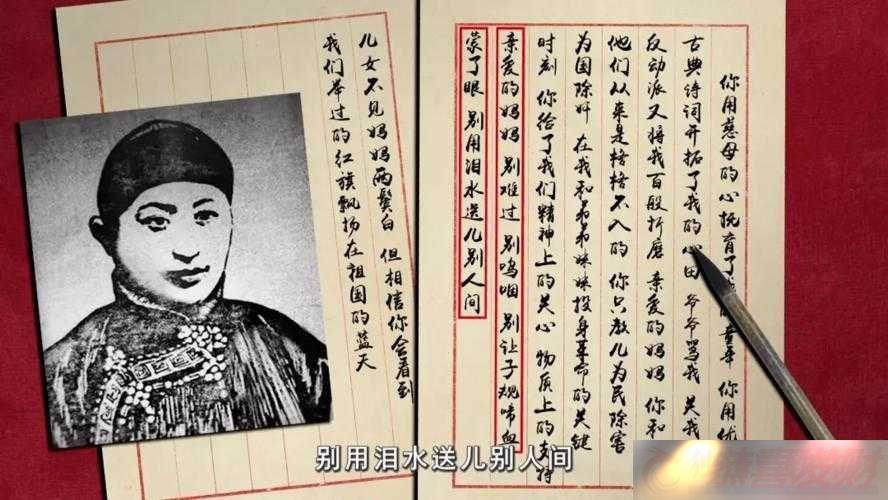 你用慈母的心抚育了我的童年 你用优
古典诗词开拓了我的心田 爷爷骂我 关我
反动派又将我百般折磨 亲爱的妈妈 你和
他们从来是格格不入的 你只教儿为民除害
为国除奸 在我和弟弟妹妹投身革命的关键
时刻 你给了我们精神上的关心 物质上的支持
亲爱的妈妈 别难过 别呜咽 别让子规啼血
蒙了眼 别用泪水送儿别人间
儿女不见妈妈两鬓白 但相信你会看到
我们举过的红旗飘扬在祖国的蓝天
别用泪水送儿别人间